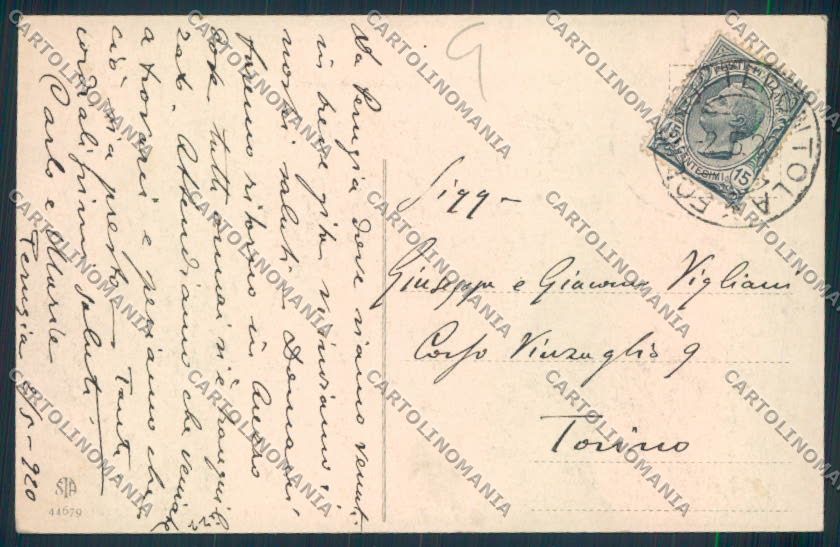 Da Perugia dove siamo venuti
in breve gita v'inviamo i
nostri saluti. Domani
faremo ritorno in
tutti ormai si è tranquilli
Attendiamo che veniate
a trovarci e speriamo che
ciò sia presto. Tanti
cordialissimi saluti
Carlo e Maria
Perugia 9/5-920
Sigg-
Giuseppe e Giacomo Vigliani
Corso Vinzaglio 9
Torino
POSTE ITALIANE
15
CENTESIMI 15
STA
44679
CARTOLINOMANIA